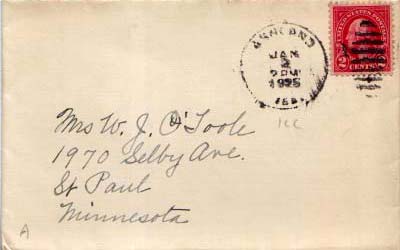 ASHLAND
JAN
2
2 PM
1925
NEBR
UNITED STATES POSTAGE
2 CENTS 2
Mrs W. J. O'Toole
1970 Selby Ave.
St Paul
Minnesota
A